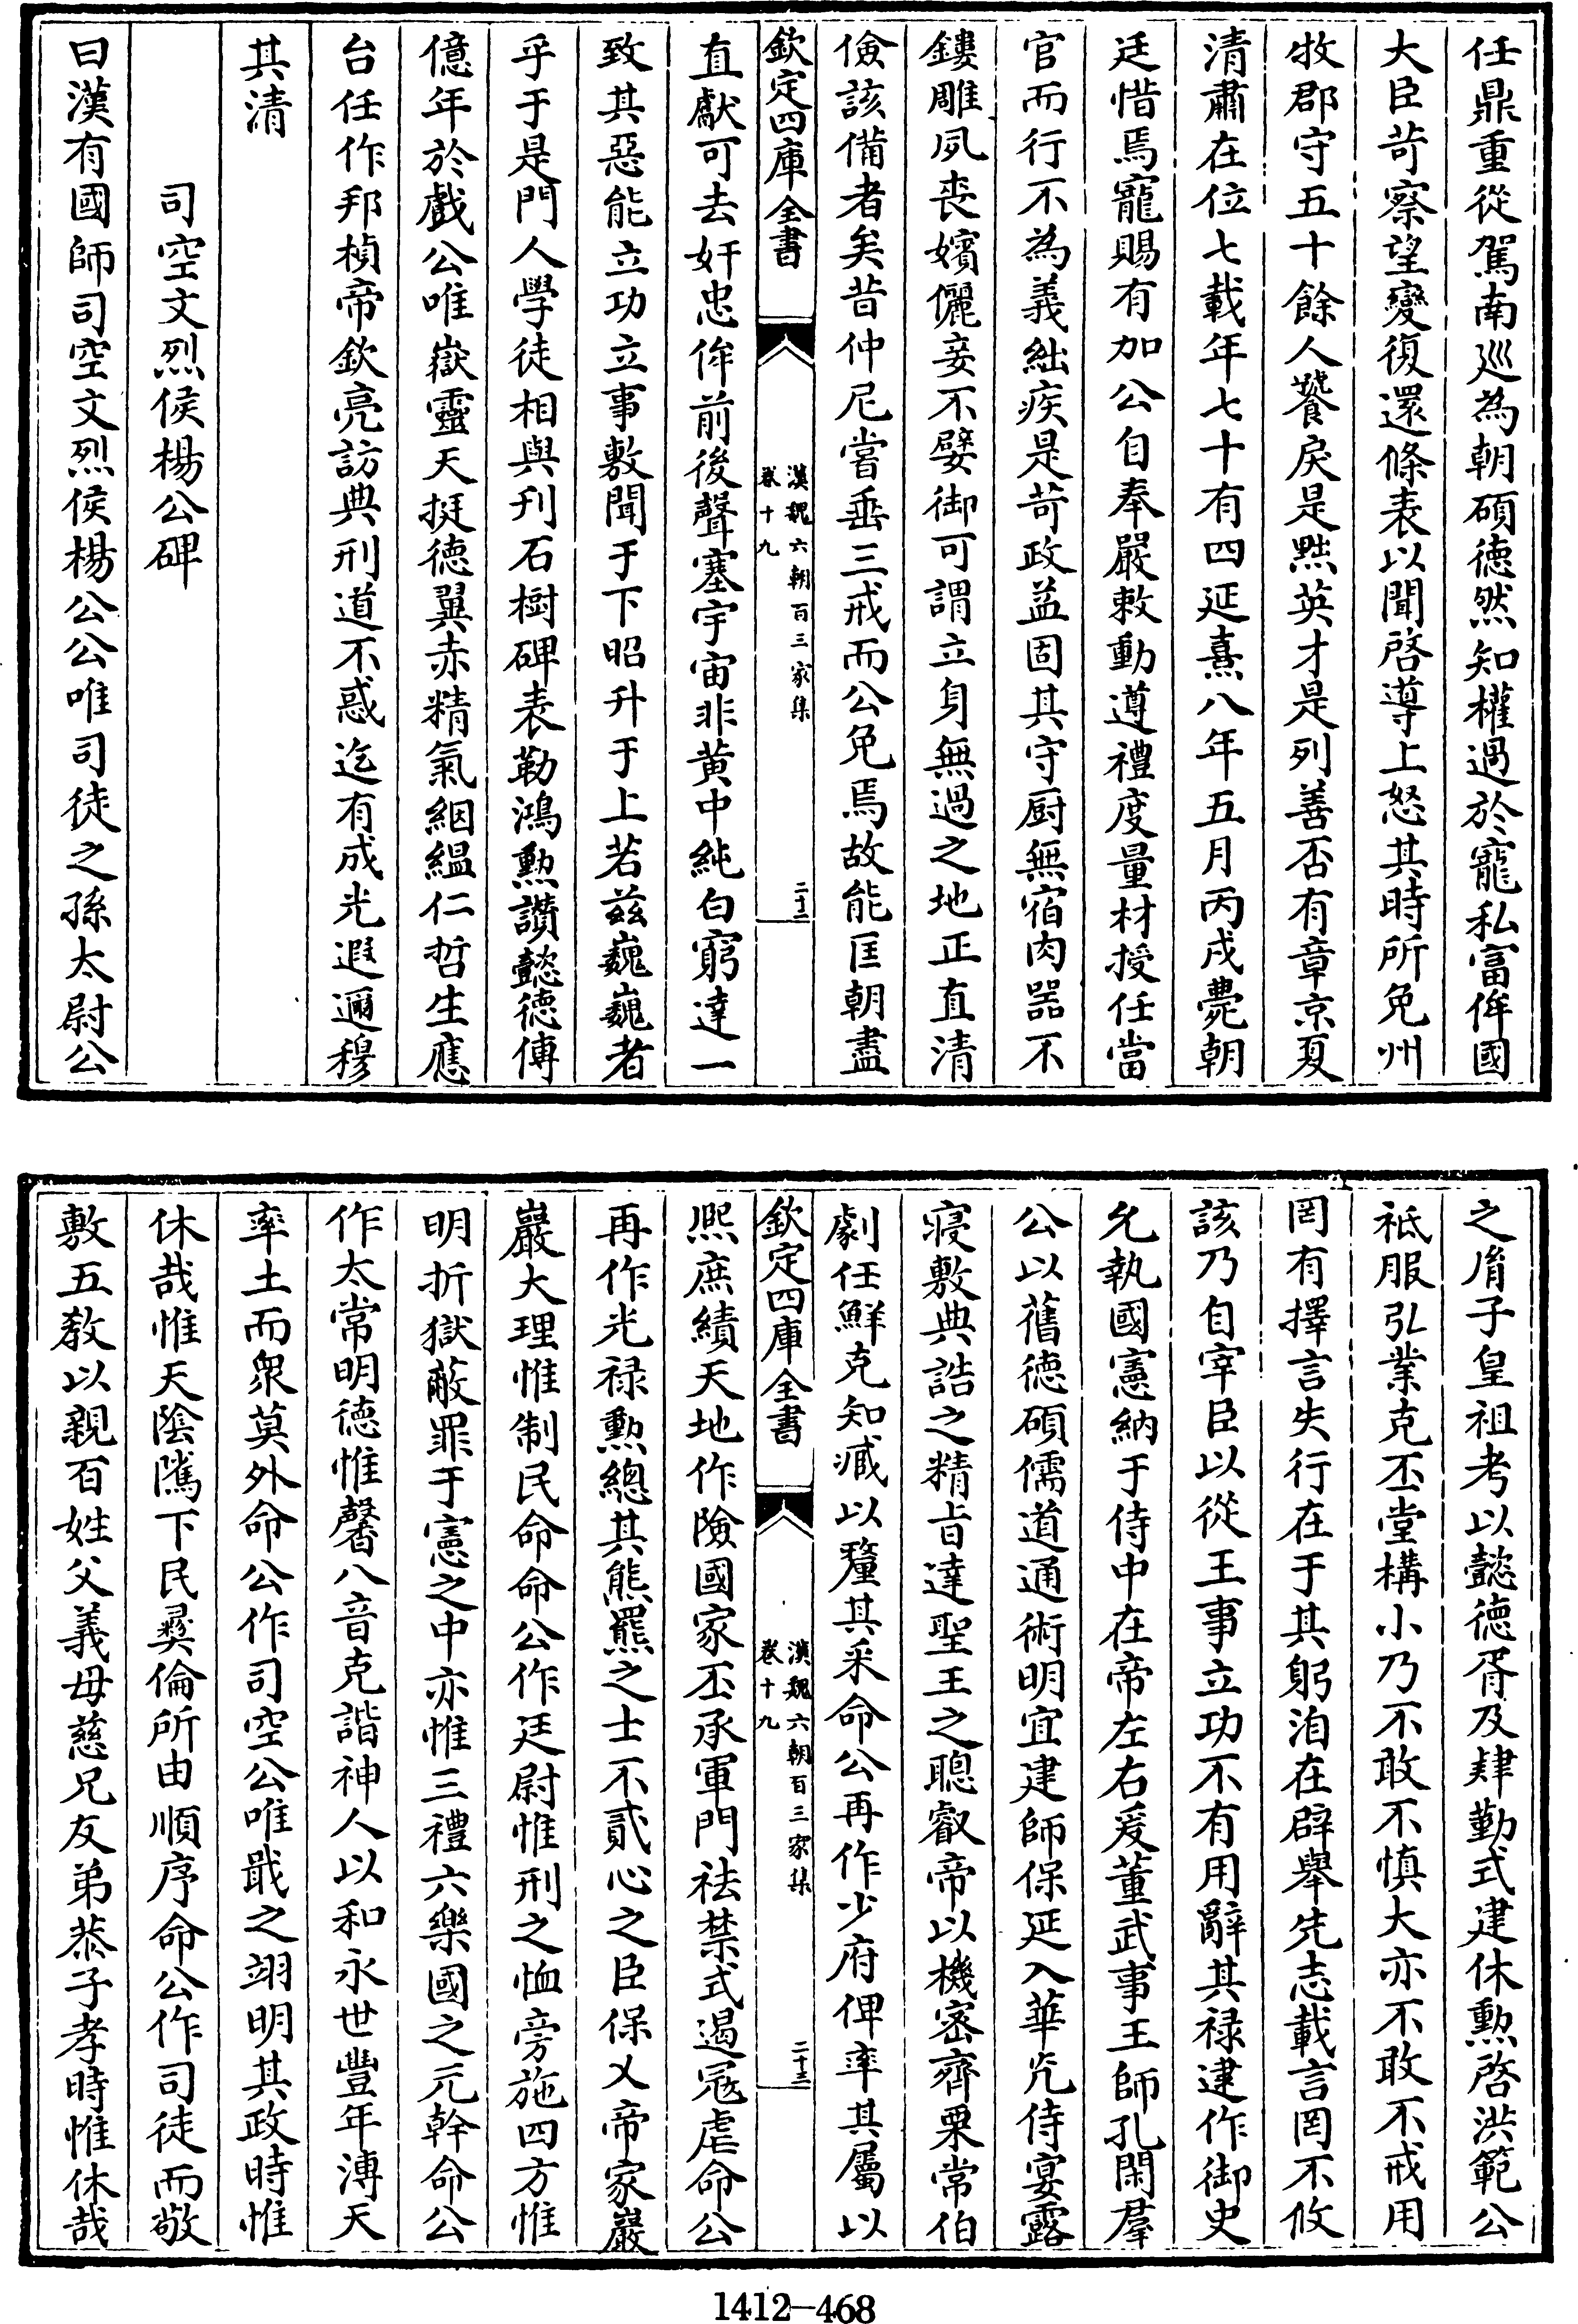 任鼎重從駕南巡為朝碩德然知權過於寵私富侔國
大臣苛察望變復還條表以聞啓導上怒其時所免州
牧郡守五十餘人饕戾是黜英才是列善否有章京夏
清肅在位七載年七十有四延熹八年五月丙戌薨朝
廷惜焉寵賜有加公自奉嚴敕動遵禮度量材授任當
官而行不為義絀疾是苛政益固其守厨無宿肉器不
鏤雕夙喪嬪儷妾不嬖御可謂立身無過之地正直清
儉該備者矣昔仲尼嘗垂三戒而公免焉故能匡朝盡
欽定四庫全書
漢魏六朝百三家集
卷十九
二十二
直獻可去奸忠侔前後聲塞宇宙非黃中純白窮達一
致其惡能立功立事敷聞于下昭升于上若茲巍巍者
乎于是門人學徒相與刊石樹碑表勒鴻勲讚懿德傳
億年於戲公唯嶽靈天挺德翼赤精氣絪縕仁哲生應
台任作邦楨帝欽亮訪典刑道不惑迄有成光遐邇穆
其清
司空文烈侯楊公碑
曰漢有國師司空文烈侯楊公公唯司徒之孫太尉公
之胤子皇祖考以懿德胥及肆勤式建休勲啓洪範公
祗服弘業克丕堂構小乃不敢不慎大亦不敢不戒用
罔有擇言失行在于其躬洎在辟舉先志載言罔不攸
該乃自宰臣以從王事立功不有用辭其祿逮作御史
允執國憲納于侍中在帝左右爰董武事王師孔閑羣
公以舊德碩儒道通術明宜建師保延入華光侍宴露
寢敷典誥之精旨達聖王之聰叡帝以機密齊栗常伯
劇任鮮克知臧以釐其采命公再作少府俾率其屬以
欽定四庫全書
漢魏六朝百三家集
卷十九
二十三
熈庶績天地作險國家丕承軍門祛禁式遏寇虐命公
再作光祿勲總其熊羆之士不貳心之臣保乂帝家嚴
嚴大理惟制民命命公作廷尉惟刑之恤旁施四方惟
明折獄蔽罪于憲之中亦惟三禮六樂國之元幹命公
作太常明德惟馨八音克諧神人以和永世豐年溥天
率土而衆莫外命公作司空公唯戢之翊明其政時惟
休哉惟天陰隲下民彛倫所由順序命公作司徒而敬
敷五教以親百姓父義母慈兄友弟恭子孝時惟休哉
1412—468